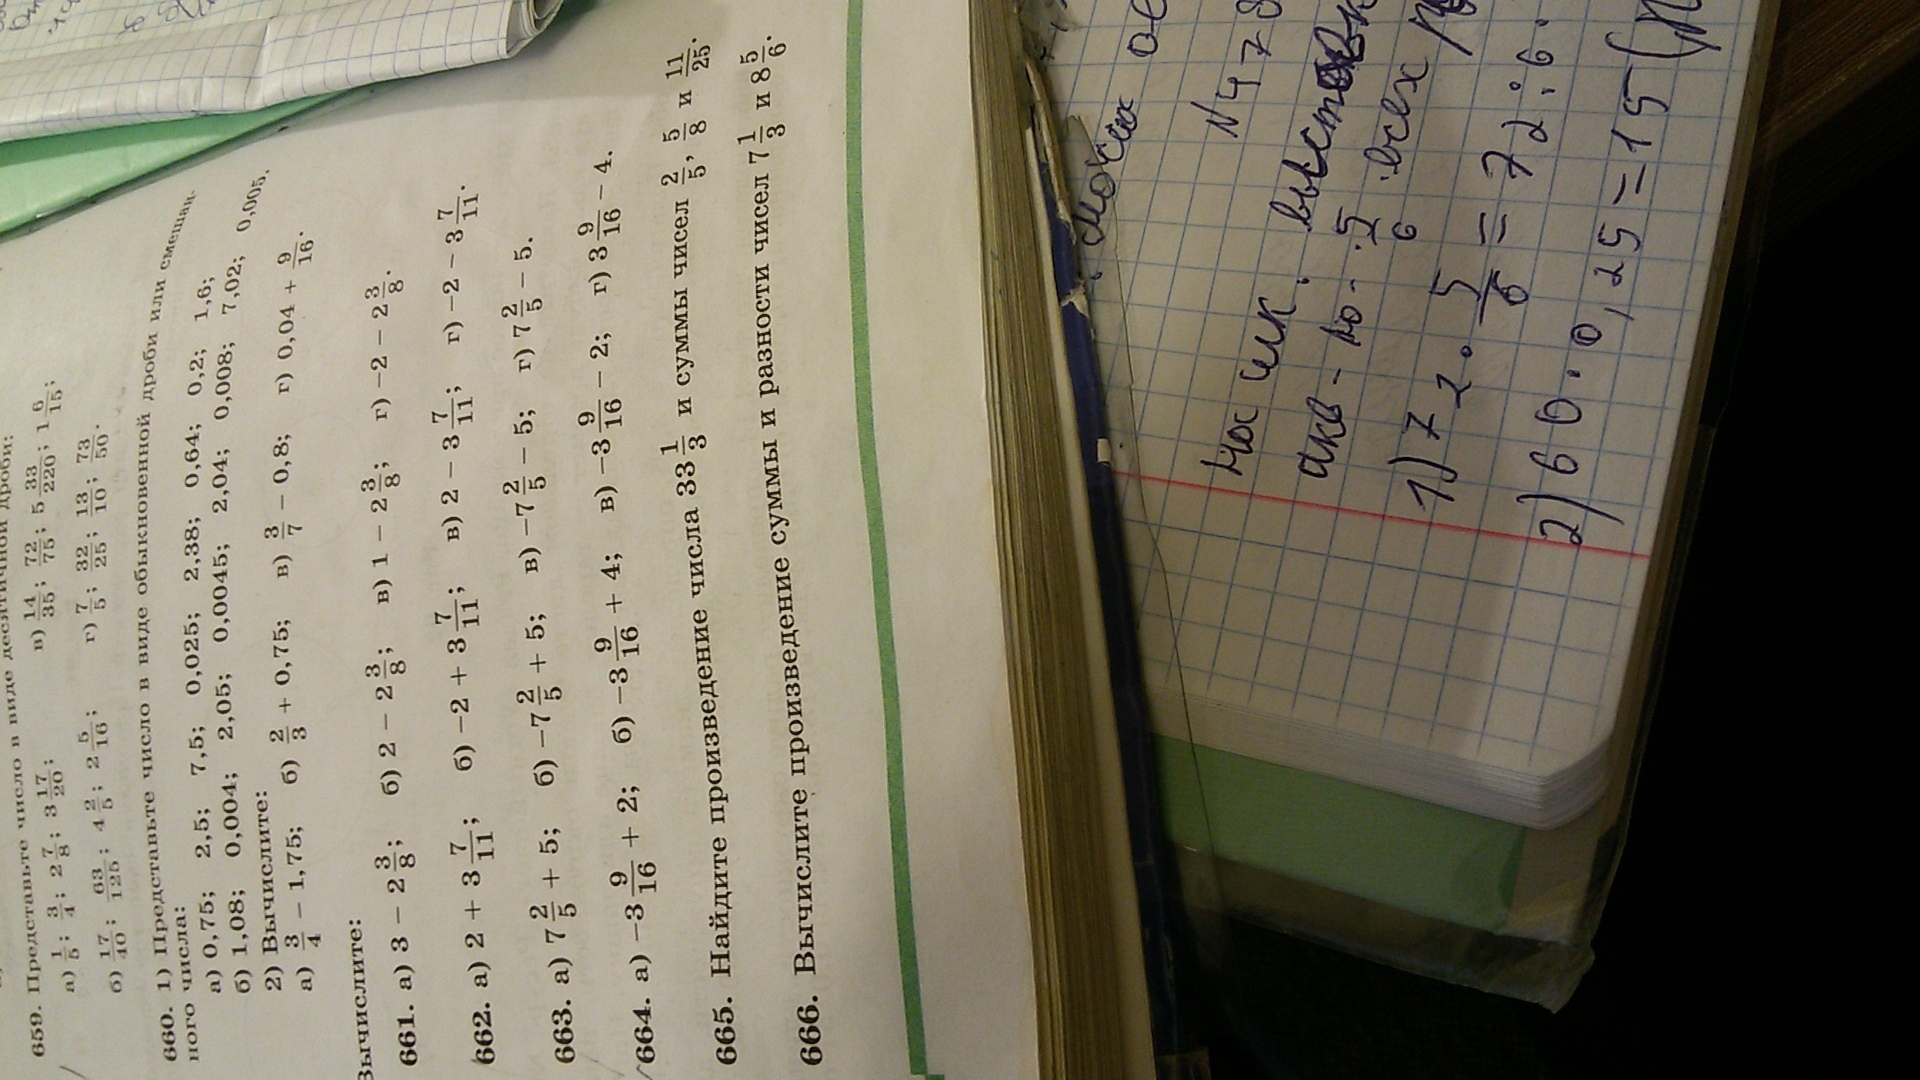 659. Представьте число в виде десятичной дроби:
а) 1/5; 3/4; 2 7/8; 3 17/20; в) 14/35; 72/75; 5 33/220; 1 6/15;
б) 17/40; 63/125; 4 2/5; 2 5/16; г) 7/5; 32/25; 13/10; 73/50.
660. 1) Представьте число в виде обыкновенной дроби или смешан-
ного числа:
а) 0,75; 2,5; 7,5; 0,025; 2,38; 0,64; 0,2; 1,6;
б) 1,08; 0,004; 2,05; 0,0045; 2,04; 0,008; 7,02; 0,005.
2) Вычислите:
а) 3/4 − 1,75; б) 2/3 + 0,75; в) 3/7 − 0,8; г) 0,04 + 9/16.
Вычислите:
661. а) 3 − 2 3/8; б) 2 − 2 3/8; в) 1 − 2 3/8; г) −2 − 2 3/8.
662. а) 2 + 3 7/11; б) −2 + 3 7/11; в) 2 − 3 7/11; г) −2 − 3 7/11.
663. а) 7 2/5 + 5; б) −7 2/5 + 5; в) −7 2/5 − 5; г) 7 2/5 − 5.
664. а) −3 9/16 + 2; б) −3 9/16 + 4; в) −3 9/16 − 2; г) 3 9/16 − 4.
665. Найдите произведение числа 33 1/3 и суммы чисел 2/5, 5/8 и 11/25.
666. Вычислите произведение суммы и разности чисел 7 1/3 и 8 5/6.
N 478
На шк. выставк
акв - 5/6 всех
1) 72 · 5/6 = 72 : 6 ·
2) 60 · 0,25 = 15 (